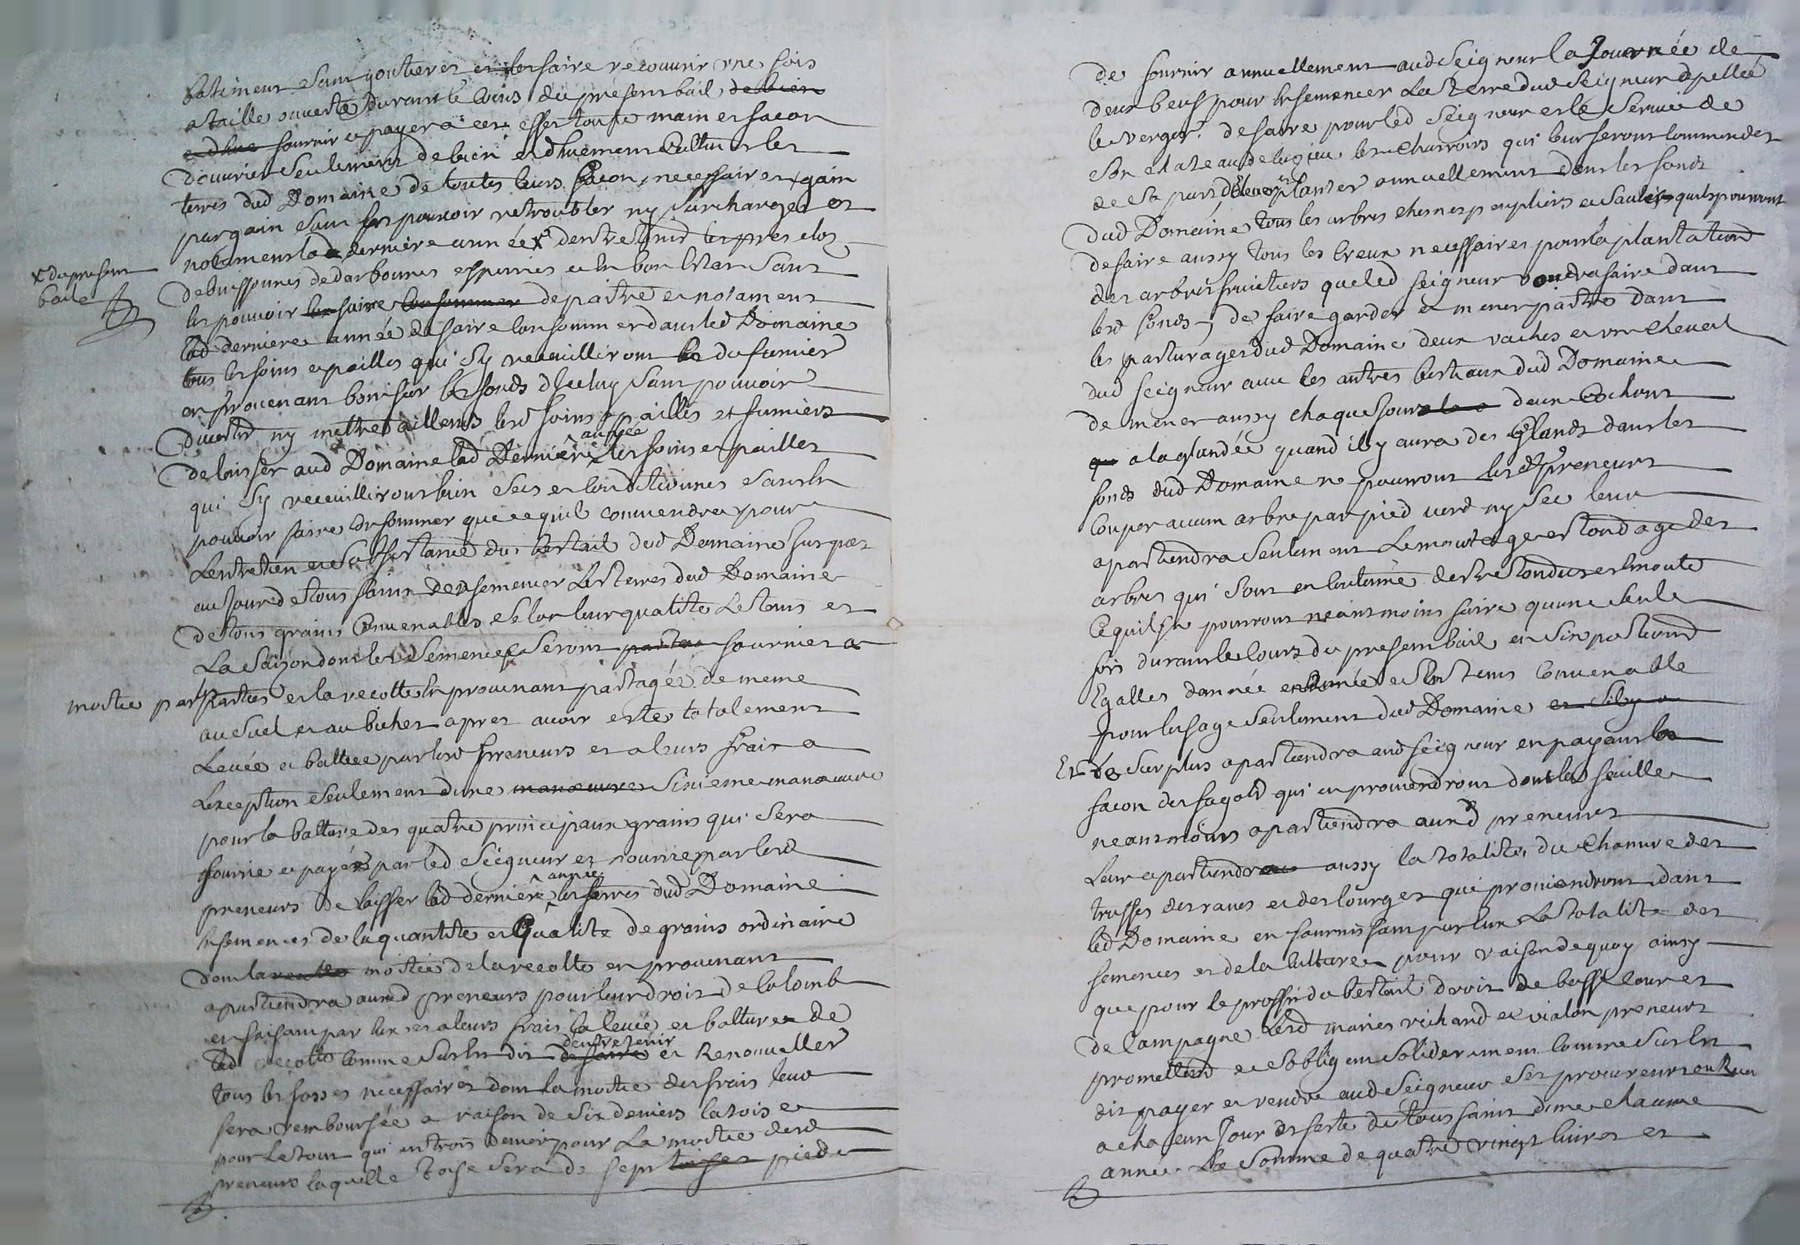 batiment sans goutieres et les faire recouvrir une fois
a taille ouverte durant le cours du present bail de bien
et dhue fournir et payer a cet effet toute main et facon
douvrier seulement de bien et dhuement cultiver les
terres dud Domaine de toutes leurs facons necessaires gain
par gain sans les pouvoir retroubler ny surcharger et
notament lad derniere année x dentretenir les pres clos
x du present
bail
de buissonnes dedarbonnes esperries et en bon estat sans
les pouvoir faire depaitre et notament
lad derniere année de faire consommer dans led Domaine
tous les foins et pailles qui sy receuilliront du fumier
en provenant bonifier les fonds dicelluy sans pouvoir
divertir ny mettre ailleurs lesd foins pailles et fumiers
de laisser aud Domaine lad Derniere année les foins et pailles
qui sy receuilliront bien secs et conditionnes sans en
pouvoir faire consommer que ce quil conviendra pour
Lentretien et subsistance du bestail dud Domaine jusques
au jour de tous saints densemencer les terres dud Domaine
de tous grains convenables selon leur qualité Letems et
La Saison dont les Semences seront par tie fournies a
moitie par parties et la recolte en provenant partagée de meme
au suel et au bichet apres avoir esté totalement
Levée et battue par lesd preneurs et a leurs frais a
Lexception seulement dune manoeuvre sixieme manoeuvre
pour la batture des quatre principaux grains qui sera
fournie et payée par led Seigneur et nourrie par lesd
preneurs de laisser lad derniere année les terres dud Domaine
ensemencés de la quantité et Qualité de grains ordinaire
dont la moitié de la recolte en provenant
apartiendra auxd preneurs pour leur droit de colomb
en faisant par eux et a leurs frais la levée et batture de
lad recolte comme sus est dit de faire dentretenir et Renouveller
tous les fosses necessaires dont la moitie des frais leur
sera remboursée a raison de six deniers la toise
pour Le tout qui est trois denier pour La moitie desd
preneurs laquelle toise sera de sept pieds
de fournir annuellement aud Seigneur la Journée de
deux beufs pour ensemencer La terre dud Seigneur apellée
le verger de faire pour led Seigneur et le service de
son chateau les charrois qui leur seront commandes
de sa part deleuer planter annuellement dans les fonds
dud Domaine tous les arbres chenes peupliers et saules quils pourront
de faire aussy tous les creux necessaires pour la plantation
des arbres fruitiers que led seigneur voudra faire dans
lesd fonds de faire garder et mener paitre dans
les pasturages dud Domaine deux vaches et un cheval
dud seigneur avec les autres bestiaux dud Domaine
de mener aussy chaque jour deux cochons
a la glandée quand il y aura des Glands dans les
fonds dud Domaine ne pourront Lesd preneurs
Couper aucun arbre par pied verd ny sec leur
apartiendra seulement Lemontage et tondage des
arbres qui sont en coutume destre tondus et emonté
Ce quils ne pourront neantmoins faire quune seule
fois durant le cours du present bail en six portions
Egalles dannée en année et en tems convenable
pour lusage seulement dud Domaine et sil y a
Et Le surplus apartiendra aud seigneur en payant la
facon des fagots qui en proviendront dont la feuille
neantmoins apartiendra auxd preneurs
Leur apartiendra aussy la totalité du Chanvre des
truffes des raves et des courges qui proviendront dans
led Domaine en fournissant par eux La totalité des
semences et de la culture pour raison de quoy ainsy
que pour le proffit du bestail droit de basse cour et
de Campagne Lesd maries richand et vialon preneurs
promettent et sobligent solidairement comme sus est
dit payer et rendre aud Seigneur ses procureurs
a chacun Jour et feste de tous saints dune chacune
année La Somme de quatre vingt livres et